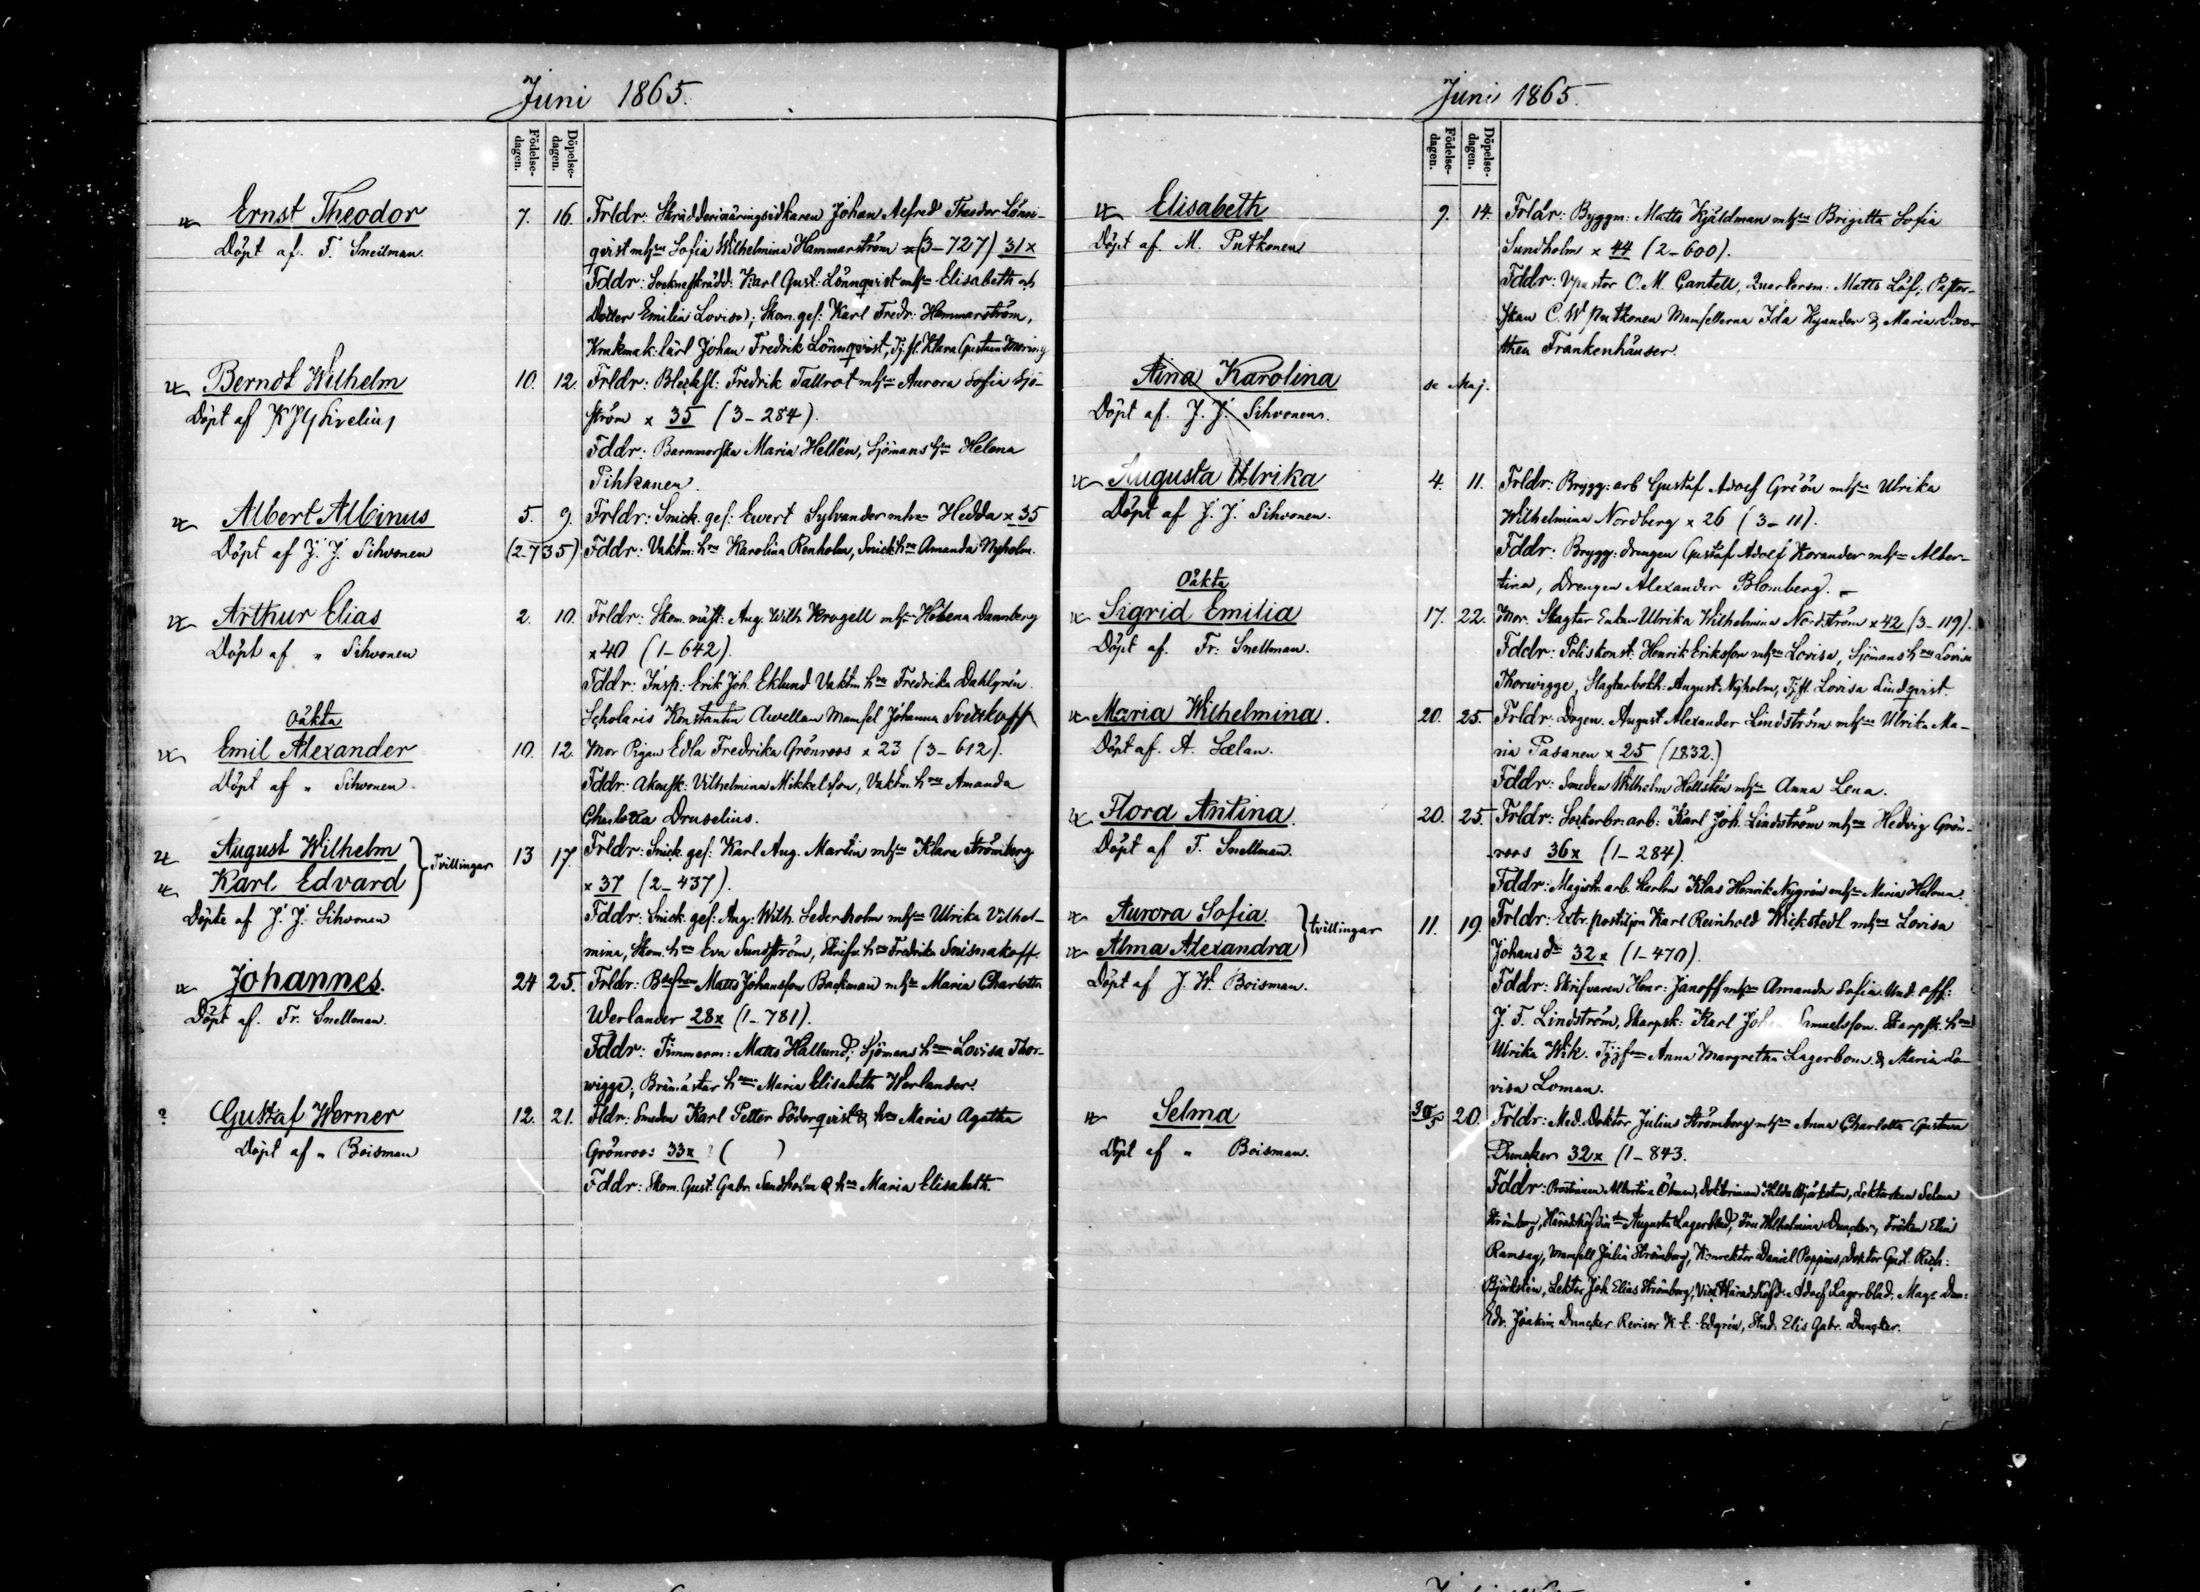 Juni 1865.
Födelse-dagen.
Döpelse-dagen.
Ernst Theodor
Döpt af. F. Snellman.
7. 16. Frldr: Skrädderinäringsidkaren Johan Alfred Theodor Lönn-
qvist mhu Sofia Wilhelmina Hammarström (3-727) 31x
Fddr: Sockneskrädd: Karl Gust: Lönnqvist mhu Elisabeth och
Dotter Emilia Lovisa; Skom. ges: Karl Fredr: Hammarström,
Krukmak. lärl Johan Fredrik Lönnqvist, Tj. fl. Klara Gustava
Berndt Wilhelm
Döpt af
10. 12. Frldr: Blecksl: Fredrik Tallrot mhu Aurora Sofia Sjö-
ström x 35 (3-284).
Fddr: Barnmorska Maria Hellén, Sjömans hu Helena
Pihkanen.
Albert Albinus
Döpt af J. J. Sihvonen
5. 9. Frldr: Snick. ges: Ewert Sylvander mhu Hedda x 35
(2-735) Fddr: Vaktm: hu Karolina Renholm, Snick hu Amanda Nyholm.
Arthur Elias
Döpt af " Sihvonen
2. 10. Frldr: Skom. mäst: Aug. Wilh Krogell mhu Helena Dannberg
x 40 (1-642).
Fddr: Insp: Erik Joh. Eklund Vaktm hu Fredrika Dahlgrén.
Scholaris Konstantin Awellan Mamsel Johanna Svetskoff
Oäkta
Emil Alexander
Döpt af " Sihvonen.
10. 12. Mor Pigan Edla Fredrika Grönroos x 23 (3-612).
Fddr: Vilhelmina Mikkelsson, Vaktm. hu Amanda
Charlotta Druselius.
August Wilhelm
Karl Edvard
Tvillingar
Döpte af J. J. Sihvonen
13 17. Frldr: Snick. ges: Karl Aug. Martin mhu Klara Strömberg
x 37 (2-437).
Fddr: Snick. ges: Aug: Wilh. Sederholm mhu Ulrika Vilhel-
mina, Skom. hu Eva Sundström, Skrifv. hu Fredrika
Johannes.
Döpt af. Fr. Snellman.
24 25. Frldr: Matts Johansson Backman mhu Maria Charlotta
Werlander 28x (1-781).
Fddr: Timmerm: Matts Hallund, Sjömans hu Lovisa Thor-
wigge, hu Maria Elisabeth Werlander.
? Gustaf Werner
Döpt af " Boisman
12. 21. Fldr: Smeden Karl Petter Söderqvist & hu Maria Agatha
Grönroos 33x ? ( )
Fddr: Skom. Gust. Gabr. Sundholm & hu Maria Elisabeth.
Juni 1865.
Födelse-dagen.
Döpelse-dagen.
Elisabeth
Döpt af M. Putkonen
9. 14. Frldr: Byggm: Matts Kjäldman mhu Brigitta Sofia
Sundholm x 44 (2-600).
Fddr: Vpastor O. M. Gantell, Quartersm: Matts Löf, Pastor-
skan C. W. Putkonen Mamsellerna Ida Kyander & Maria Doro-
thea Frankenhäuser.
Aina Karolina
Döpt af. J. J. Sihvonen.
se Maj.
Augusta Ulrika
Döpt af J. J. Sihvonen.
4. 11. Frldr: Brygg: arb Gustaf Adolf Gröön mhu Ulrika
Wilhelmina Nordberg x 26 (3-11).
Fddr: Brygg: drengen Gustaf Adolf Korander mhu Alber-
tina, Drengen Alexander Blomberg.
Oäkta
Sigrid Emilia
Döpt af. Fr: Snellman.
17. 22. Mor. Slagtar Enkan Ulrika Wilhelmina Nordström x 42 (3-119).
Fddr: Poliskonst: Henrik Eriksson mhu Lovisa, Sjömans hu Lovisa
Thorwigge, Slagtarbokh: August Nyholm, Tj. fl Lovisa Lindqvist
Maria Wilhelmina.
Döpt af. A. Sælan.
20. 25. Frldr: Drgen. August Alexander Lindström mhu Ulrika Ma-
ria Pasanen x 25 (1832.)
Fddr: Smeden Wilhelm Hellstén mhu Anna Lena.
Flora Antina.
Döpt af F. Snellman.
20. 25. Frldr: Sockerbr: arb: Karl Joh. Lindström mhu Hedvig Grön-
roos 36x (1-284).
Fddr: Magistr. arb. Karlen Klas Henrik Nygrén mhu Maria Helena.
Aurora Sofia.
Alma Alexandra
tvillingar
Döpt af J. W. Boisman.
11. 19. Frldr: Extr. postiljon Karl Reinhold Wickstedt mhu Lovisa
Johansdr 32x (1-470).
Fddr: Skrifvaren Henr: Janoff mhu Amanda Sofia. Und. off:
J. F. Lindström, Skarpsk: Karl Johan Samuelsson. Skarpsk. hu
Ulrika Wik. Anna Margretha Lagerbom & Maria Lo-
visa Loman.
Selma
Döpt af " Boisman.
30/5 20. Frldr: Med. Doktor Julius Strömborg mhu Anna Charlotta Gustava
Duncker 32x (1-843.
Fddr: Prostinnan Albertina Öhman, Doktorinnan Hilda Björkstén, Lektorskan Selma
Strömborg, Augusta Lagerblad, Fru Wilhelmina Duncker, Fröken Elin
Ramsay, Mamsell Julia Strömborg, Konrektor Daniel Poppius, Doktor Gust. Rich:
Björkstén, Lektor Joh. Elias Strömborg, Vice Häradshöfd: Adolf Lagerblad, Mag:
Edv. Joakim Duncker Revisor K. E. Edgrén, Stud. Elis Gabr. Duncker.